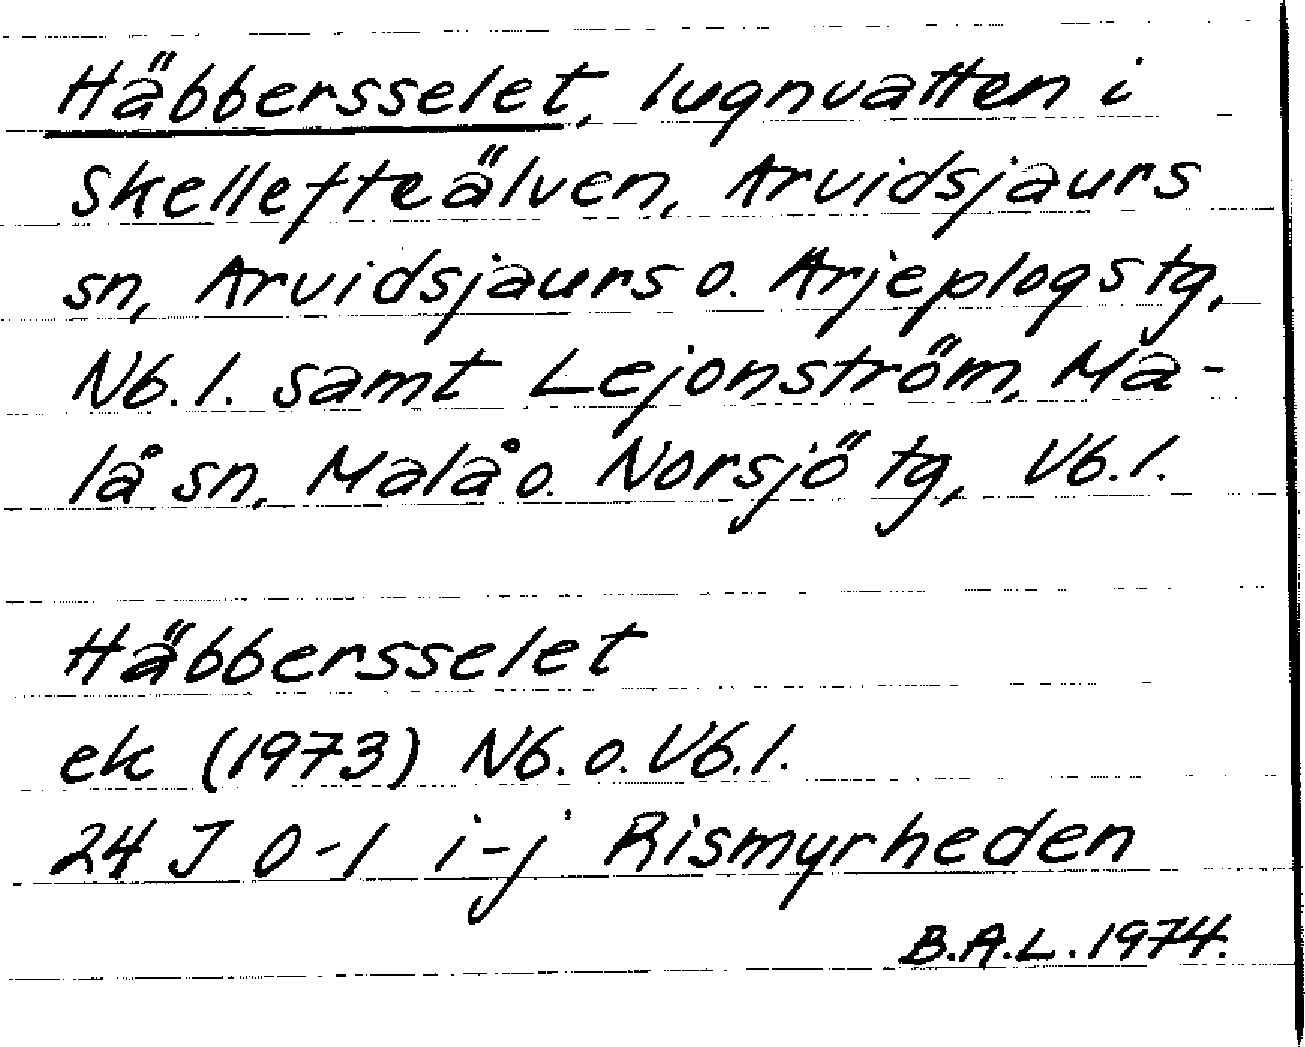 Häbbersselet, lugnvatten i
Skellefteälven, Arvidsjaurs
sn, Arvidsjaurs o. Arjeplogs tg,
Nb.l. samt Lejonström, Ma-
lå sn, Malå o. Norsjö tg, Vb.l.
Häbbersselet
ek (1973) Nb. o. Vb.l.
24 J 0-1 i-j Rismyrheden
B.A.L. 1974.